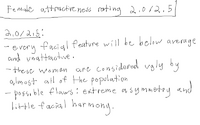 Female attractiveness rating 2.0/2.5
2.0/2.5:
- every facial feature will be below average
and unattractive.
- these women are considered ugly by
almost all of the population
- possible flaws: extreme asymmetry and
little facial harmony.